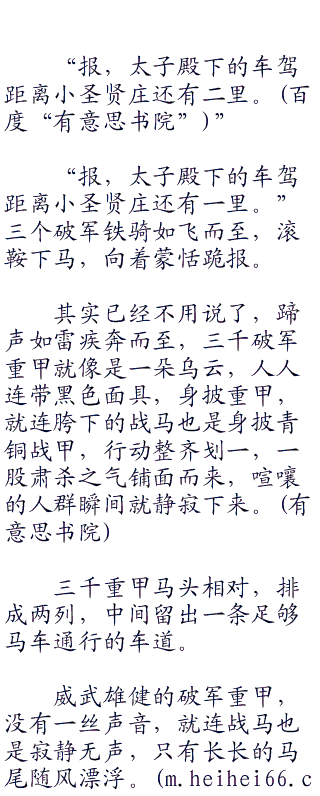 “报，太子殿下的车驾
距离小圣贤庄还有二里。(百
度“有意思书院”)”
“报，太子殿下的车驾
距离小圣贤庄还有一里。”
三个破军铁骑如飞而至，滚
鞍下马，向着蒙恬跪报。
其实已经不用说了，蹄
声如雷疾奔而至，三千破军
重甲就像是一朵乌云，人人
连带黑色面具，身披重甲，
就连胯下的战马也是身披青
铜战甲，行动整齐划一，一
股肃杀之气铺面而来，喧嚷
的人群瞬间就静寂下来。(有
意思书院)
三千重甲马头相对，排
成两列，中间留出一条足够
马车通行的车道。
威武雄健的破军重甲，
没有一丝声音，就连战马也
是寂静无声，只有长长的马
尾随风漂浮。(m.heihei66.c